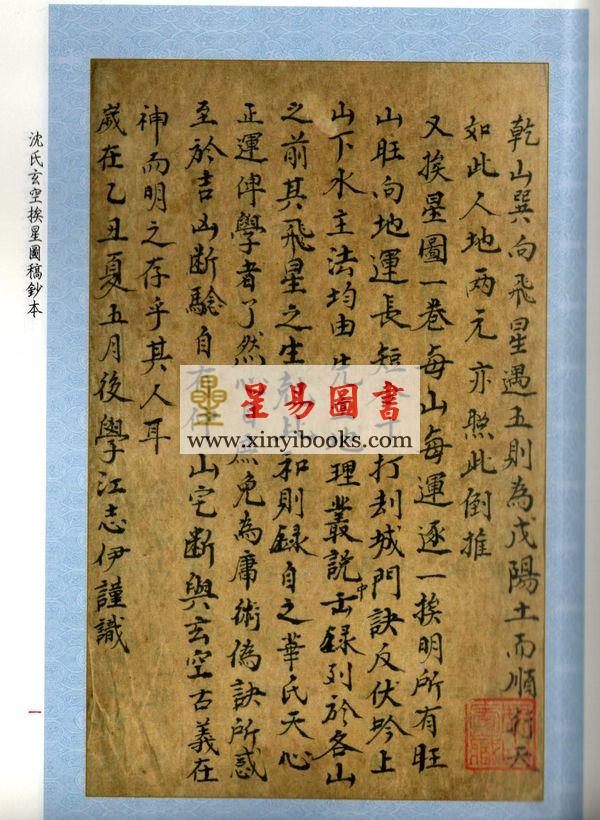 乾山巽向飛星遇五則為戊陽土而順行天
如此人地两元亦照此倒推
又挨星圖一巷每山每運逐一挨明所有旺
山旺向地運長短 打刦城門訣反伏吟上
山下水主法均由 先 地理叢說中去録列於各山
之前其飛星之生尅比和則録自之華氏天心
正運俾學者了然心目庶免為庸術偽訣所惑
至於吉凶断驗自有 山宅断與玄空古義在
神而明之存乎其人耳
嵗在乙丑夏五月後學江志伊謹識
沈氏玄空挨星圖稿鈔本
一
星易圖書
www.xinyibooks.com